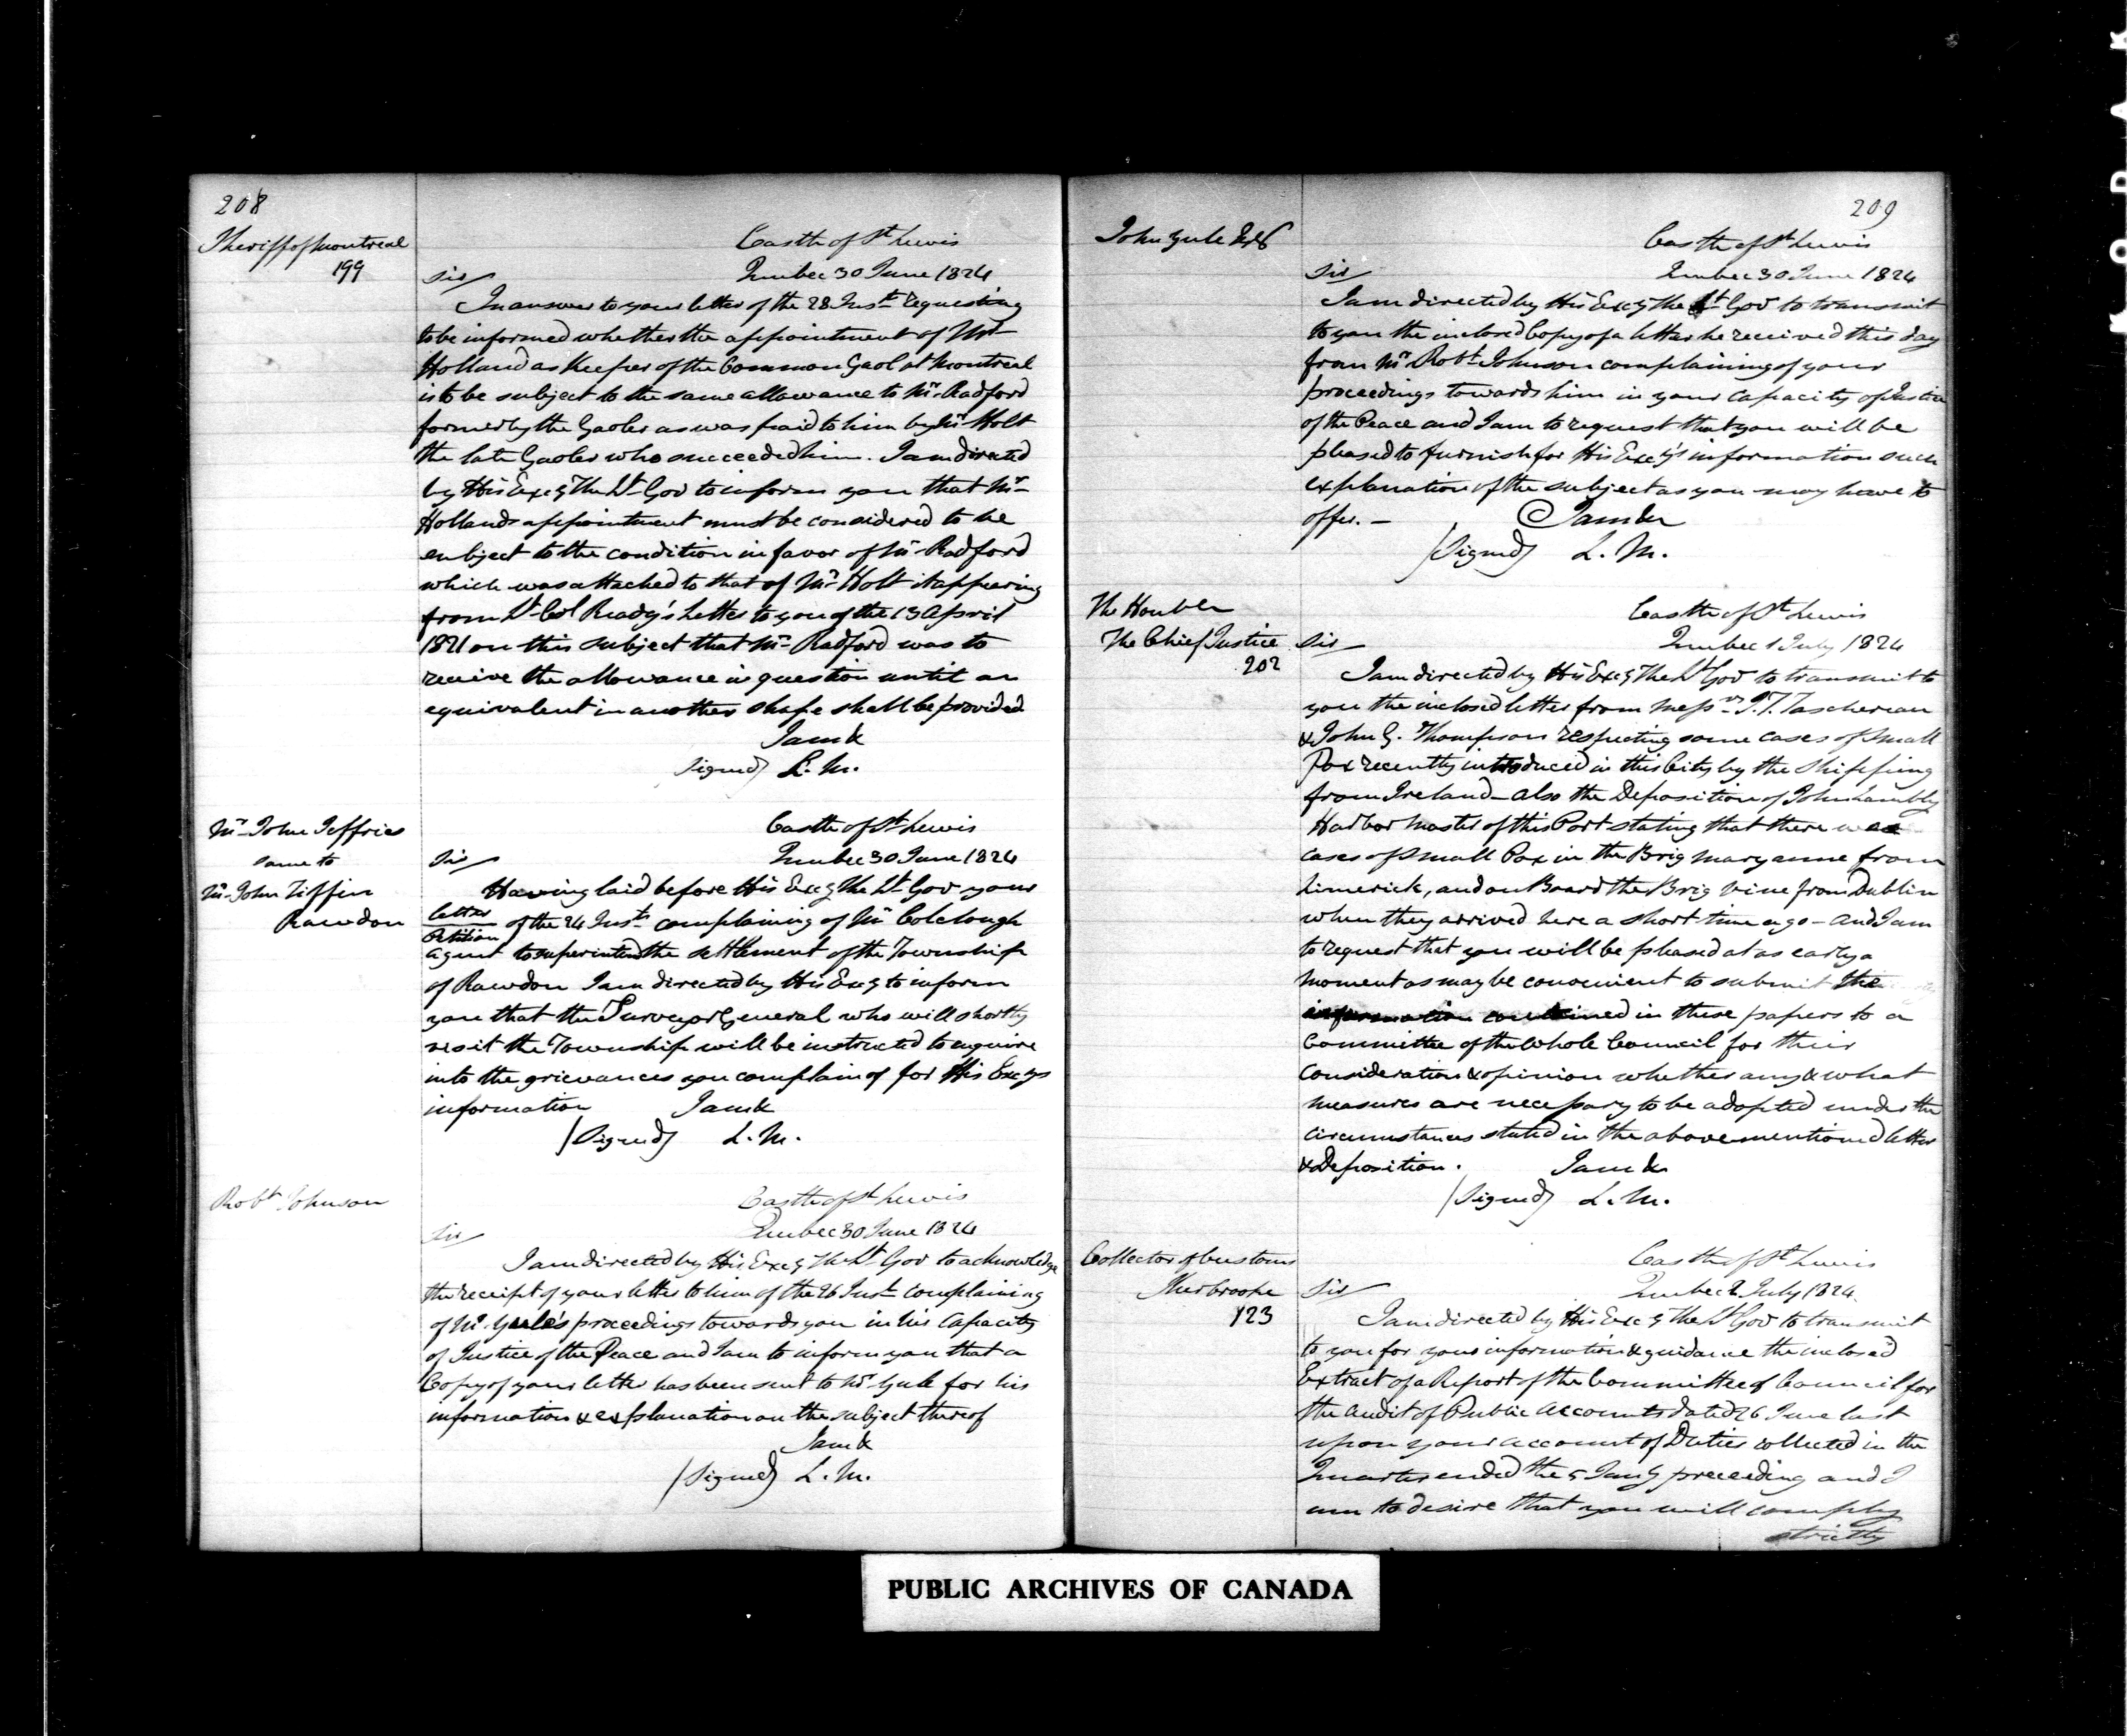 208
Sheriff of Montreal
199
Castle of St Lewis
Quebec 30 June 1824
Sir
In answer to your letter of the 28 Inst requesting
to be informed whether the appointment of Mr
Holland as Keeper of the Common Gaol at Montreal
is to be subject to the same allowance to Mr Radford
formerly the Gaoler as was paid to him by Mr Holt
the late Gaoler who succeeded him. I am directed
by His Excy The Lt Gov to inform you that Mr
Hollands appointment must be considered to be
subject to the condition in favor of Mr Radford
which was attached to that of Mr Holt it appearing
from Lt Col Ready's Letter to you of the 13 April
1821 on this subject that Mr Radford was to
receive the allowance in question until an
equivalent in another shape shall be provided
I am &
Signed) L. M.
Mr John Jeffries
same to
Mr John Tiffin
Rawdon
Castle of St Lewis
Quebec 30 June 1824
Sir
Having laid before His Excy The Lt Gov your
letter
Petition
of the 24 Inst complaining of Mr Colclough
agent to superintend the settlement of the Township
of Rawdon I am directed by His Excy to inform
you that the Surveyor General who will shortly
visit the Township will be instructed to enquire
into the grievances you complain of for His Excys
information I am &
(Signed) L. M.
Robt Johnson
Castle of St Lewis
Quebec 30 June 1824
Sir
I am directed by His Excy The Lt Gov to acknowledge
the receipt of your letter to him of the 26 Inst complaining
of Mr Yule's proceedings towards you in his Capacity
of Justice of the Peace and I am to inform you that a
Copy of your letter has been sent to Mr Yule for his
information & explanation on the subject thereof
I am &
(Signed) L. M.
209
John Yule
Castle of St Lewis
Sir
Quebec 30 June 1824
I am directed by His Excy the Lt Gov to transmit
to you the inclosed Copy of a letter he received this day
from Mr Robt Johnson complaining of your
proceedings towards him in your Capacity of Justice
of the Peace and I am to request that you will be
pleased to furnish for His Excy's information such
explanation of the subject as you may have to
offer. — I am &
(Signed) L. M.
The Honble
The Chief Justice
202
Castle of St Lewis
Sir
Quebec 1 July 1824
I am directed by His Excy The Lt Gov to transmit to
you the inclosed letter from Messrs J. T. Taschereau
& John G. Thompson respecting some cases of Small
Pox recently introduced in this City by the Shipping
from Ireland — also the Deposition of John Lambly
Harbor Master of this Port stating that there was
cases of Small Pox in the Brig Maryanne from
Limerick, and on Board the Brig Vine from Dublin
when they arrived here a short time ago — and I am
to request that you will be pleased at as early a
moment as may be convenient to submit the
information contained in these papers to a
Committee of the Whole Council for their
Consideration & opinion whether any & what
measures are necessary to be adopted under the
circumstances stated in the abovementioned letter
& Deposition. I am &
(Signed) L. M.
Collector of Customs
Sherbrooke
123
Castle of St Lewis
Sir
Quebec 2 July 1824
I am directed by His Excy The Lt Gov to transmit
to you for your information & guidance the inclosed
Extract of a Report of the Committee of Council for
the Audit of Public Accounts dated 26 June last
upon your account of Duties collected in the
Quarter ended the 5 Jany preceeding and I
am to desire that you will comply
strictly
PUBLIC ARCHIVES OF CANADA